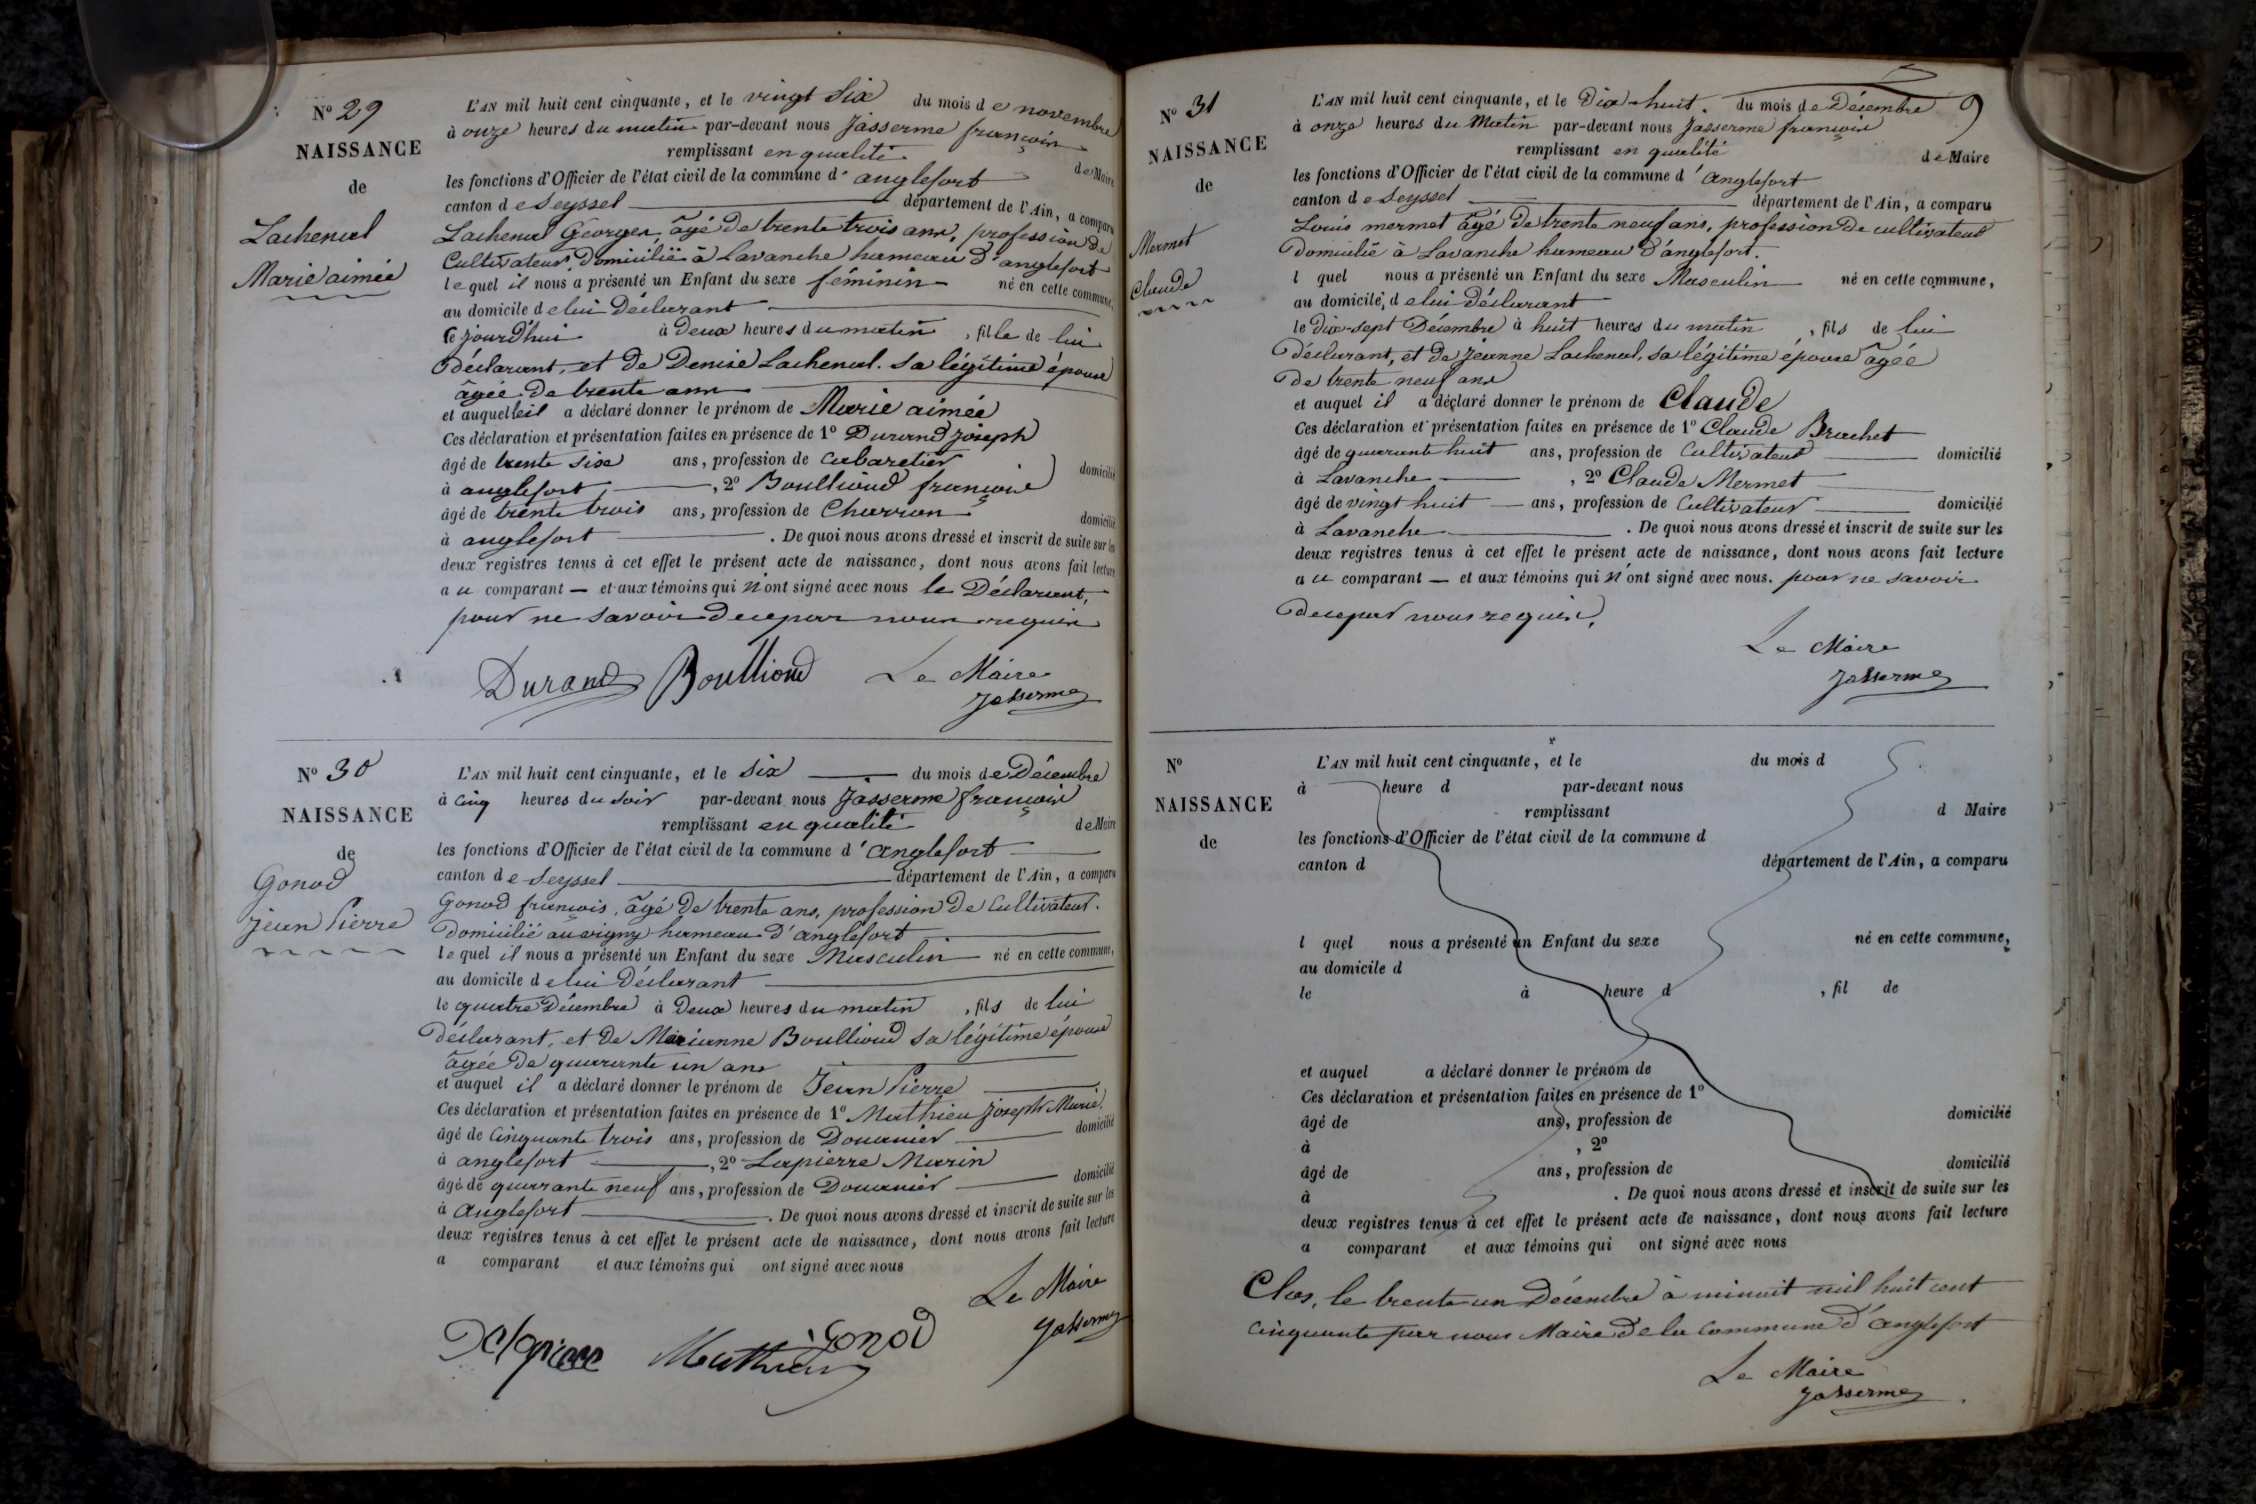 N° 29
NAISSANCE
de
Lachenal
Marie aimée
L'AN mil huit cent cinquante, et le vingt Six du mois de novembre
à onze heures du matin par-devant nous Jasserme françois
remplissant en qualité de Maire
les fonctions d'Officier de l'état civil de la commune d' anglefort
canton de Seyssel département de l'Ain, a comparu
Lachenal Georges, âgé de trente trois ans, profession de
Cultivateur, Domicilié à Lavanche hameau d'anglefort
lequel il nous a présenté un Enfant du sexe féminin né en cette commune,
au domicile de lui Déclarant
ce jourd'hui à deux heures du matin, fille de lui
déclarant, et de Denise Lachenal. Sa légitime épouse
âgée de trente ans
et auquel il a déclaré donner le prénom de Marie aimée
Ces déclaration et présentation faites en présence de 1° Durand joseph
âgé de trente Six ans, profession de Cabaretier domicilié
à anglefort, 2° Boullioud françois
âgé de trente trois ans, profession de Charron domicilié
à anglefort. De quoi nous avons dressé et inscrit de suite sur les
deux registres tenus à cet effet le présent acte de naissance, dont nous avons fait lecture
au comparant — et aux témoins qui n'ont signé avec nous le Déclarant,
pour ne savoir de ce par nous requis
Durand Boullioud Le Maire
Jasserme
N° 30
NAISSANCE
de
Gonod
Jean Pierre
L'AN mil huit cent cinquante, et le Six du mois de Décembre
à cinq heures du soir par-devant nous Jasserme françois
remplissant en qualité de Maire
les fonctions d'Officier de l'état civil de la commune d' anglefort
canton de Seyssel département de l'Ain, a comparu
Gonod françois, âgé de trente ans, profession de Cultivateur.
Domicilié au vigny hameau d'anglefort
lequel il nous a présenté un Enfant du sexe Masculin né en cette commune,
au domicile de lui Déclarant
le quatre Décembre à Deux heures du matin, fils de lui
déclarant, et de Marianne Boullioud sa légitime épouse
âgée De quarante un ans
et auquel il a déclaré donner le prénom de Jean Pierre
Ces déclaration et présentation faites en présence de 1° Mathieu joseph Marie.
âgé de Cinquante trois ans, profession de Douanier domicilié
à anglefort, 2° Lapierre Marin
âgé de quarante neuf ans, profession de Douanier domicilié
à Anglefort. De quoi nous avons dressé et inscrit de suite sur les
deux registres tenus à cet effet le présent acte de naissance, dont nous avons fait lecture
a comparant et aux témoins qui ont signé avec nous
Le Maire
Delapierre Mathieu Gonod Jasserme
N° 31
NAISSANCE
de
Mermet
Claude
L'AN mil huit cent cinquante, et le Dix-huit. du mois de Décembre
à onze heures du Matin par-devant nous Jasserme françois
remplissant en qualité de Maire
les fonctions d'Officier de l'état civil de la commune d' Anglefort
canton de Seyssel département de l'Ain, a comparu
Louis mermet âgé de trente neuf ans, profession de cultivateur
Domicilié à Lavanche hameau d'anglefort.
l quel nous a présenté un Enfant du sexe Masculin né en cette commune,
au domicile, de lui Déclarant
le Dix-sept Décembre à huit heures du matin, fils de lui
Déclarant, et de Jeanne Lachenal, sa légitime épouse âgée
De trente neuf ans
et auquel il a déclaré donner le prénom de Claude
Ces déclaration et présentation faites en présence de 1° Claude Brachet
âgé de quarante huit ans, profession de Cultivateur domicilié
à Lavanche, 2° Claude Mermet
âgé de vingt huit — ans, profession de Cultivateur domicilié
à Lavanche. De quoi nous avons dressé et inscrit de suite sur les
deux registres tenus à cet effet le présent acte de naissance, dont nous avons fait lecture
au comparant — et aux témoins qui n'ont signé avec nous. pour ne savoir
de ce par nous requis,
Le Maire
Jasserme
N°
NAISSANCE
de
L'AN mil huit cent cinquante, et le du mois d
à heure d par-devant nous
remplissant d Maire
les fonctions d'Officier de l'état civil de la commune d
canton d département de l'Ain, a comparu
l quel nous a présenté un Enfant du sexe né en cette commune,
au domicile d
le à heure d, fil de
et auquel a déclaré donner le prénom de
Ces déclaration et présentation faites en présence de 1°
âgé de ans, profession de domicilié
à, 2°
âgé de ans, profession de domicilié
à. De quoi nous avons dressé et inscrit de suite sur les
deux registres tenus à cet effet le présent acte de naissance, dont nous avons fait lecture
a comparant et aux témoins qui ont signé avec nous
Clos, le trente un Décembre à minuit mil huit cent
cinquante par nous Maire de la commune d'anglefort
Le Maire
Jasserme